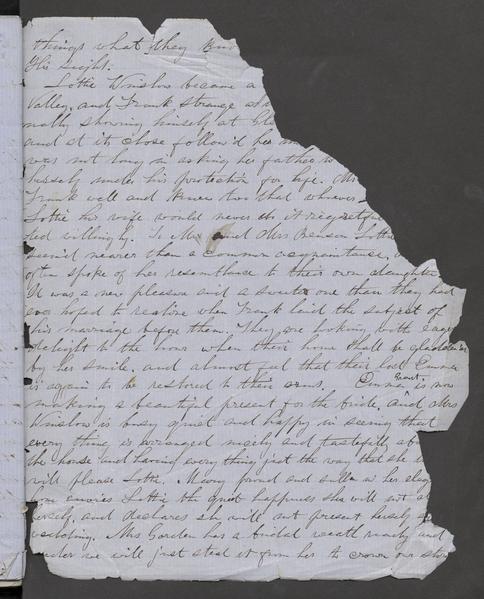 things what they
His sight.
Lottie Winslow became a
Valley, and Frank Strange
nally showing himself at
and at its close follow'd her
was not long in asking her father to
herself under his protection for life. Mr
Frank well and knew too that wherever
Lottie his wife would never do it
ted willingly. To Mr and Mrs Benson Lottie
seem'd nearer than a common acquaintance,
often spoke of her resemblance to their own daughter
It was a new pleasure and a sweeter one than they had
ever hoped to realise when Frank laid the subject of
his marriage before them. They are looking with eager
delight to the hour when their home shall be gladden'd
by her smile, and almost feel that their lost Emma
is again to be restored to their arms. Emma is now
making a beautiful present for the bride, and Mrs
Winslow is busy quiet and happy in seeing that
every thing is arranged nicely and tastefully
the house and having every thing just the way that she
will please Lottie. Mary proud and sullen in her
envies Lottie the quiet happiness she will not
herself, and declares she will not present herself
wedding. Mrs Gorden has a bridal wreath ready and
we will just steal it from her to crown our story